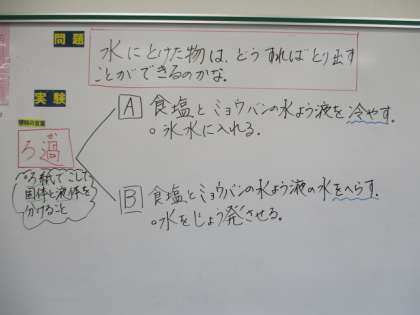 問題
水にとけた物は、どうすればとり出す
ことができるのかな。
実験
A 食塩とミョウバンの水よう液を冷やす。
○氷水に入れる。
ろ過
ろ紙でこして
固体と液体を
分けること
B 食塩とミョウバンの水よう液の水をへらす。
○水をじょう発させる。